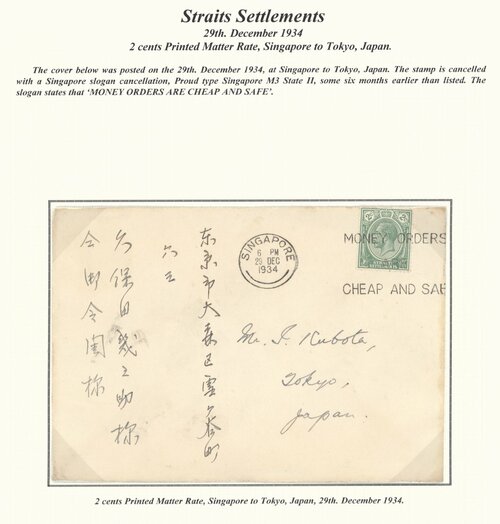 Straits Settlements
29th. December 1934
2 cents Printed Matter Rate, Singapore to Tokyo, Japan.
The cover below was posted on the 29th. December 1934, at Singapore to Tokyo, Japan. The stamp is cancelled
with a Singapore slogan cancellation, Proud type Singapore M3 State II, some six months earlier than listed. The
slogan states that ‘MONEY ORDERS ARE CHEAP AND SAFE’.
SINGAPORE
6 PM
29 DEC
1934
MONEY ORDERS
ARE
CHEAP AND SAF
东京市大森区雪ケ谷町
六三
久保田幾之助様
令閨様
Mr. I. Kubota,
Tokyo,
Japan.
2 cents Printed Matter Rate, Singapore to Tokyo, Japan, 29th. December 1934.